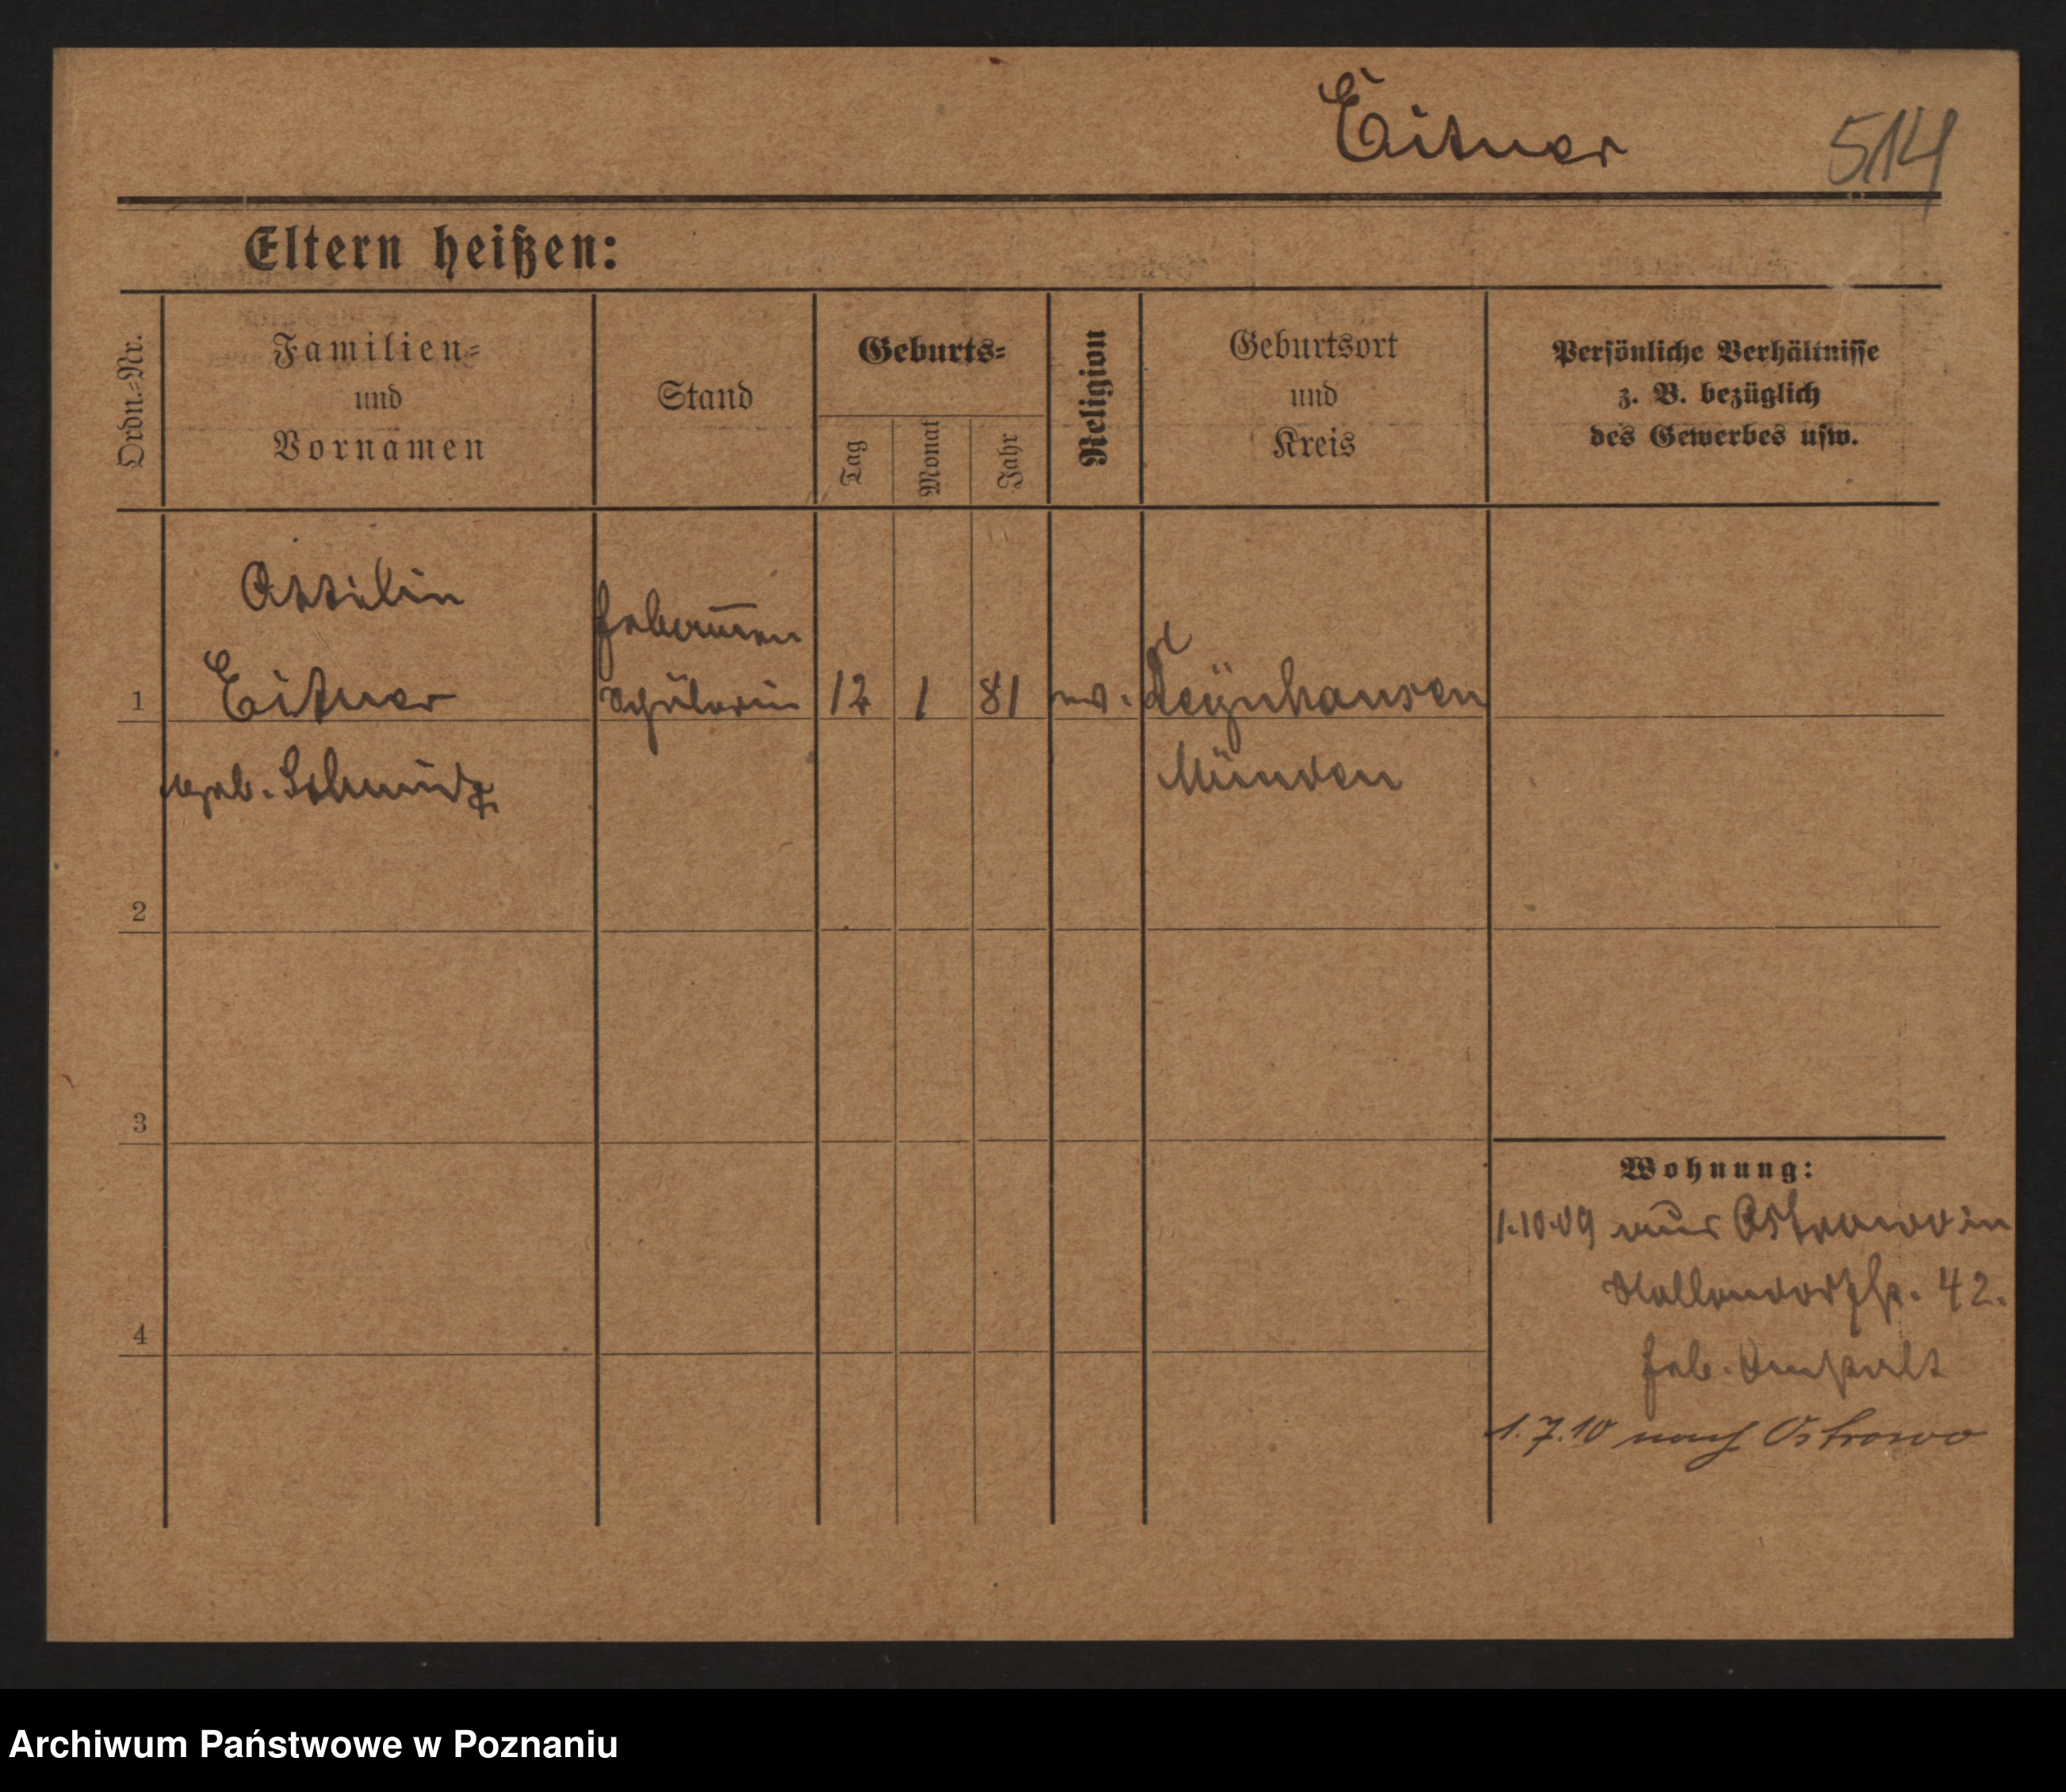 Eitner 514
Eltern heißen:
Ordn.=Nr.
Familien=
und
Vornamen
Stand
Geburts=
Tag
Monat
Jahr
Religion
Geburtsort
und
Kreis
Persönliche Verhältnisse
z. B. bezüglich
des Gewerbes usw.
Eitner
geb. Schmidt
Hebammen
Schülerin
1
12 1 81
ev.
Oeynhausen
Minden
2
3
4
Wohnung:
1.10.09 aus Ostrowo in
42.
Heb. Anstalt
1.7.10 nach Ostrowo
Archiwum Państwowe w Poznaniu